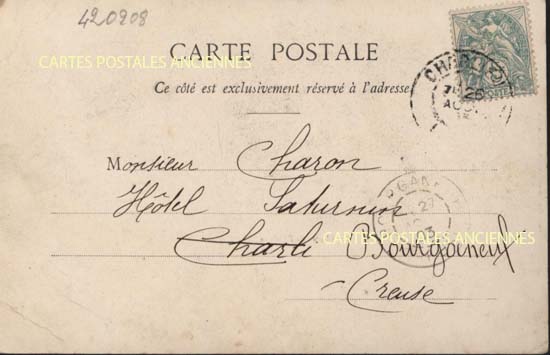 420908
CARTES POSTALES ANCIENNES
CARTE POSTALE
Ce côté est exclusivement réservé à l'adresse
Monsieur Charon
Hôtel Saturnin
CARTES POSTALES ANCIENNES
Charli Bourganeuf
Creuse